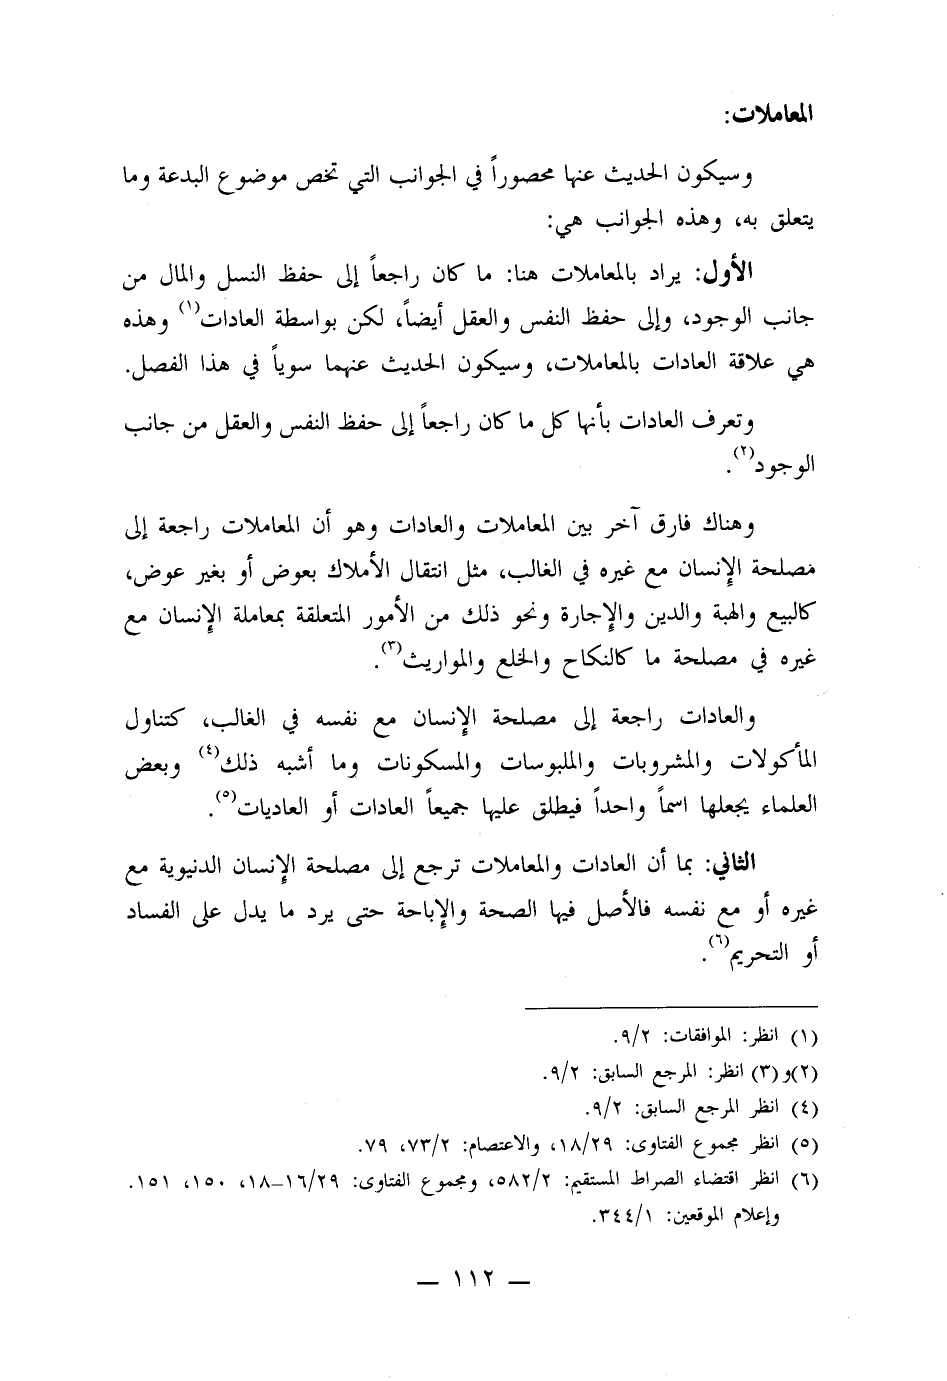 المعاملات:
وسيكون الحديث عنها محصوراً في الجوانب التي تخص موضوع البدعة وما
يتعلق به، وهذه الجوانب هي:
الأول: يراد بالمعاملات هنا: ما كان راجعاً إلى حفظ النسل والمال من
جانب الوجود، وإلى حفظ النفس والعقل أيضاً، لكن بواسطة العادات(١) وهذه
هي علاقة العادات بالمعاملات، وسيكون الحديث عنهما سوياً في هذا الفصل.
وتعرف العادات بأنها كل ما كان راجعاً إلى حفظ النفس والعقل من جانب
الوجود(٢).
وهناك فارق آخر بين المعاملات والعادات وهو أن المعاملات راجعة إلى
مصلحة الإنسان مع غيره في الغالب، مثل انتقال الأملاك بعوض أو بغير عوض،
كالبيع والهبة والدين والإجارة ونحو ذلك من الأمور المتعلقة بمعاملة الإنسان مع
غيره في مصلحة ما كالنكاح والخلع والمواريث(٣).
والعادات راجعة إلى مصلحة الإنسان مع نفسه في الغالب، كتناول
المأكولات والمشروبات والملبوسات والمسكونات وما أشبه ذلك(٤) وبعض
العلماء يجعلها اسماً واحداً فيطلق عليها جميعاً العادات أو العاديات(٥).
الثاني: بما أن العادات والمعاملات ترجع إلى مصلحة الإنسان الدنيوية مع
غيره أو مع نفسه فالأصل فيها الصحة والإباحة حتى يرد ما يدل على الفساد
أو التحريم(٦).
(١) انظر: الموافقات: ٩/٢.
(٢)و(٣) انظر: المرجع السابق: ٩/٢.
(٤) انظر المرجع السابق: ٩/٢.
(٥) انظر مجموع الفتاوى: ١٨/٢٩، والاعتصام: ٧٣/٢، ٧٩.
(٦) انظر اقتضاء الصراط المستقيم: ٥٨٢/٢، ومجموع الفتاوى: ١٦/٢٩–١٨، ١٥٠، ١٥١.
وإعلام الموقعين: ٣٤٤/١.
— ١١٢ —